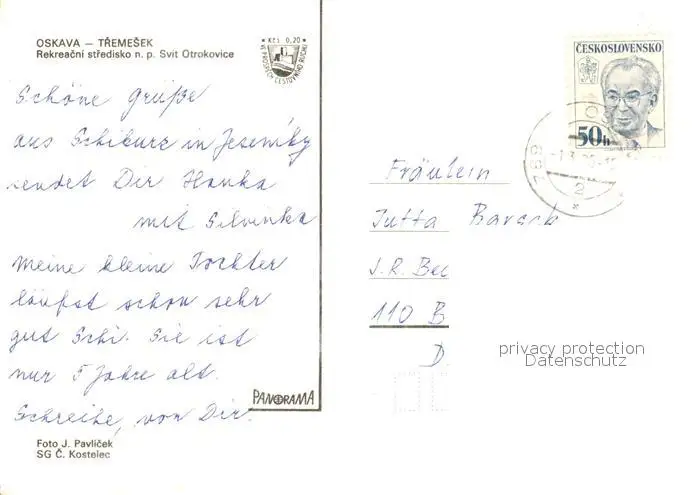 OSKAVA – TŘEMEŠEK
Rekreační středisko n. p. Svit Otrokovice
Kčs 0,20
VE PROSPĚCH CESTOVNÍHO RUCHU
Schöne Grüße
aus Schikurz in Jeseníky
sendet Dir Hanka
mit Silvinka
Meine kleine Tochter
läufst schon sehr
gut Schi. Sie ist
nur 5 Jahre alt.
Schreibe, von Dir.
PANORAMA
Foto J. Pavlíček
SG Č. Kostelec
ČESKOSLOVENSKO
50h
788
2
Fräulein
Jutta
J.R. Bec
110 B
D
privacy protection
Datenschutz